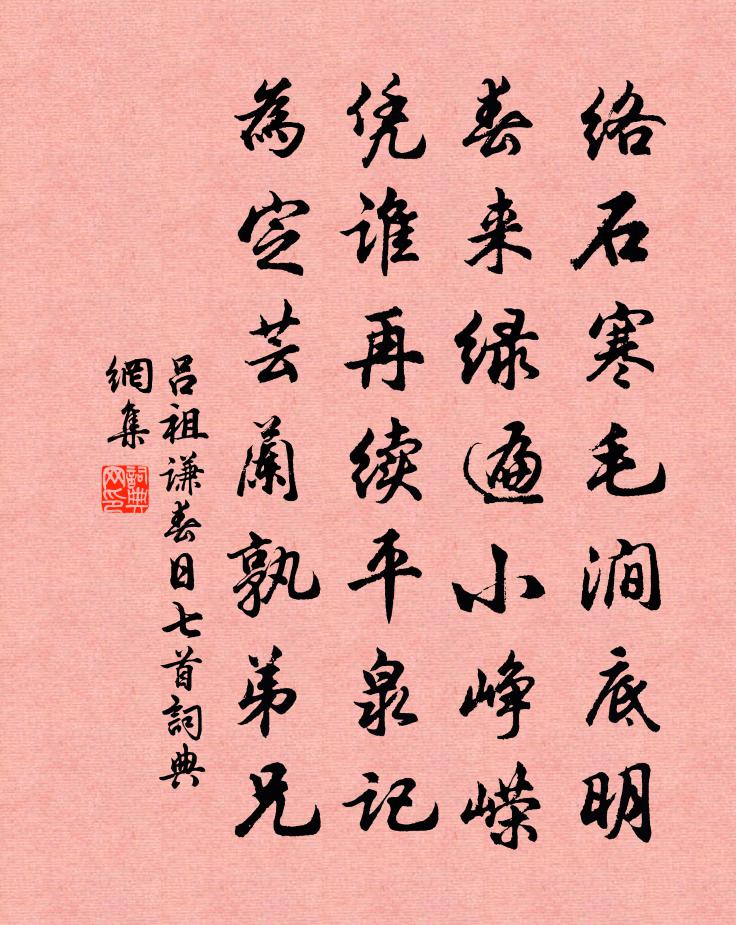 络石寒毛涧底明
春来绿遍小峥嵘
凭谁再续平泉记
为定芸兰孰弟兄
吕祖谦春日七首词典
网集
词典网印